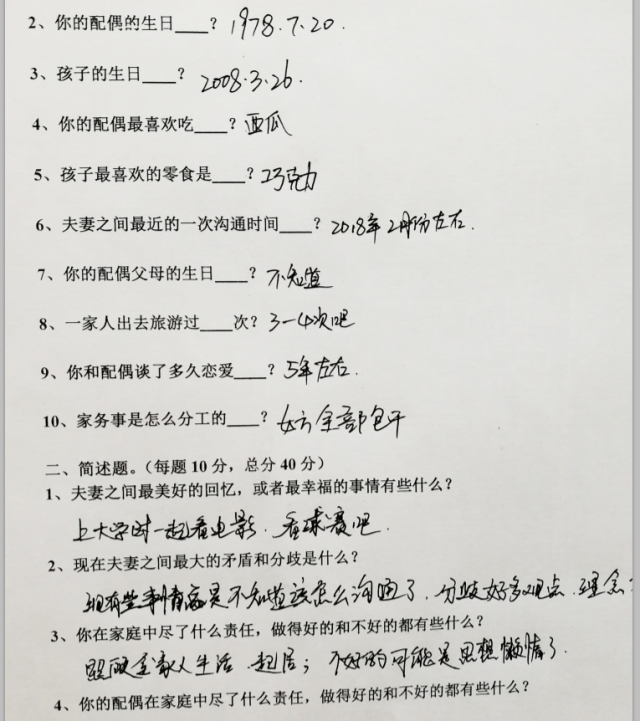 2、你的配偶的生日____？ 1978.7.20.
3、孩子的生日____？ 2008.3.26.
4、你的配偶最喜欢吃____？西瓜
5、孩子最喜欢的零食是____？巧克力
6、夫妻之间最近的一次沟通时间____？ 2018年2月份左右.
7、你的配偶父母的生日____？ 不知道
8、一家人出去旅游过____次？ 3-4次吧
9、你和配偶谈了多久恋爱____？ 5年左右.
10、家务事是怎么分工的____？ 女方全部包干
二、简述题。（每题10分，总分40分）
1、夫妻之间最美好的回忆，或者最幸福的事情有些什么？
上大学时一起看电影、看球赛吧.
2、现在夫妻之间最大的矛盾和分歧是什么？
现有些事情是不知道该怎么沟通了，分歧好多观点、理念
3、你在家庭中尽了什么责任，做得好的和不好的都有些什么？
照顾全家人生活、起居；不好的可能是思想懒惰了.
4、你的配偶在家庭中尽了什么责任，做得好的和不好的都有些什么？